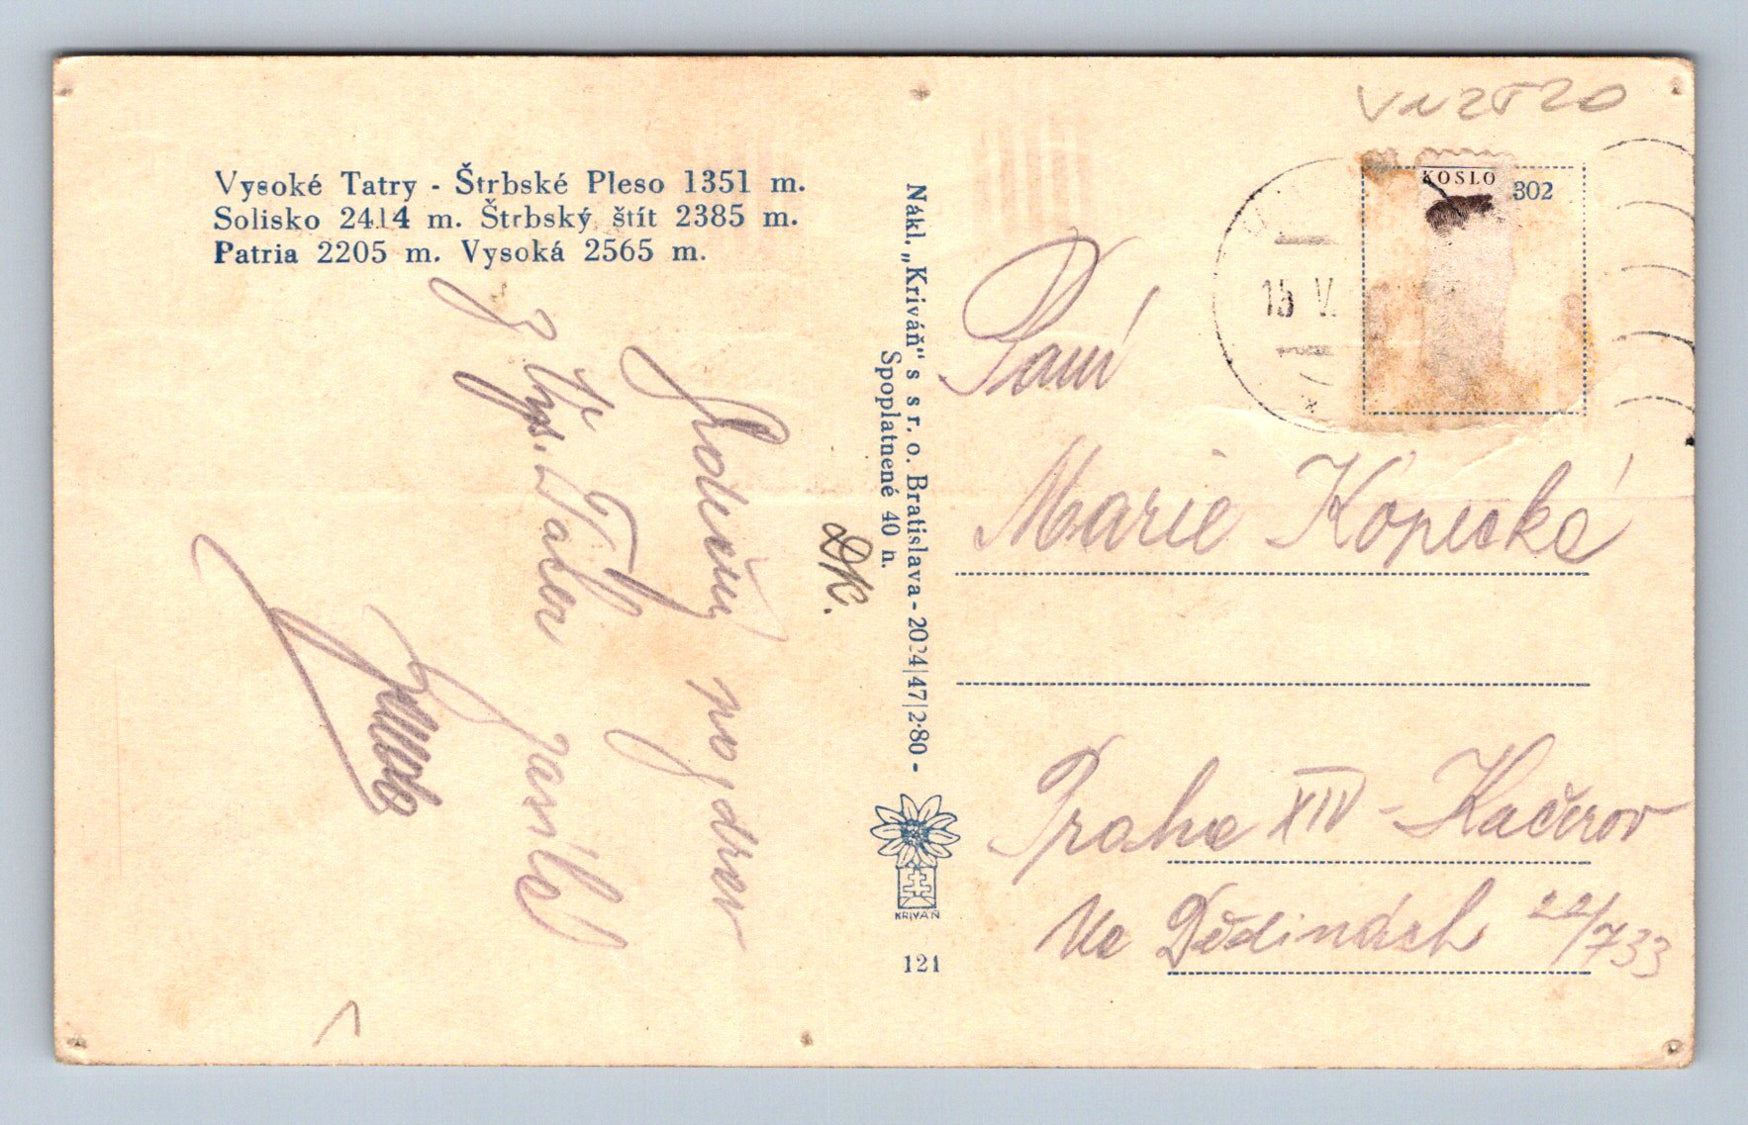 Vysoké Tatry - Štrbské Pleso 1351 m.
Solisko 2414 m. Štrbský štít 2385 m.
Patria 2205 m. Vysoká 2565 m.
Srdečný pozdrav
z Vys. Tater
zasílá
DK.
Nákl. „Kriváň" s s r. o. Bratislava - 2024|47|2·80 -
Spoplatnené 40 h.
KRIVÁŇ
121
KOSLO
302
15 V.
Paní
Marie Kopecká
Praha XIV - Kačerov
Na Dědinách 22/733